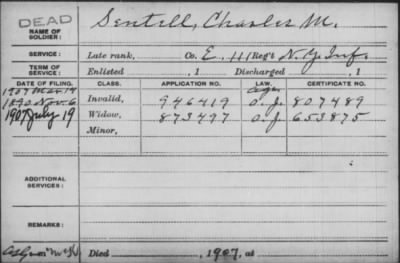 DEAD
NAME OF SOLDIER: Sentell, Charles M.
SERVICE: Late rank, Co. E, 111 Reg't N.Y. Inf.
TERM OF SERVICE: Enlisted , 1 Discharged , 1
DATE OF FILING. CLASS. APPLICATION NO. LAW. CERTIFICATE NO.
1907 Mar. 14
1890 Nov. 6 Invalid, 946419 O. J. 807489
1907 July 19 Widow, 873497 O. J. 653875
Minor,
ADDITIONAL SERVICES:
REMARKS:
Died , 1907, at